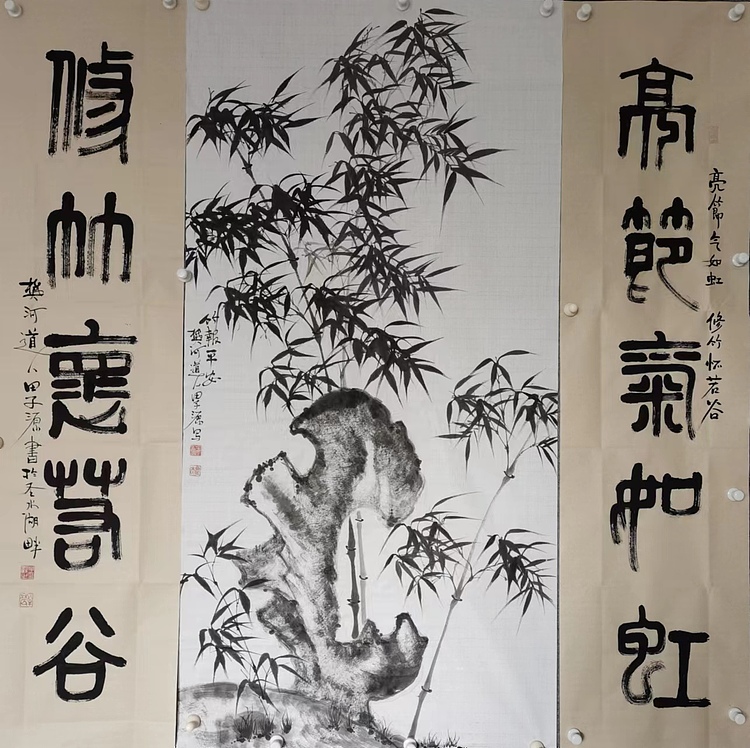 亮節氣如虹
亮節气如虹 修竹怀若谷
竹報平安
樊河道人田子源写
修竹懷若谷
樊河道人田子源書於圣水湖畔